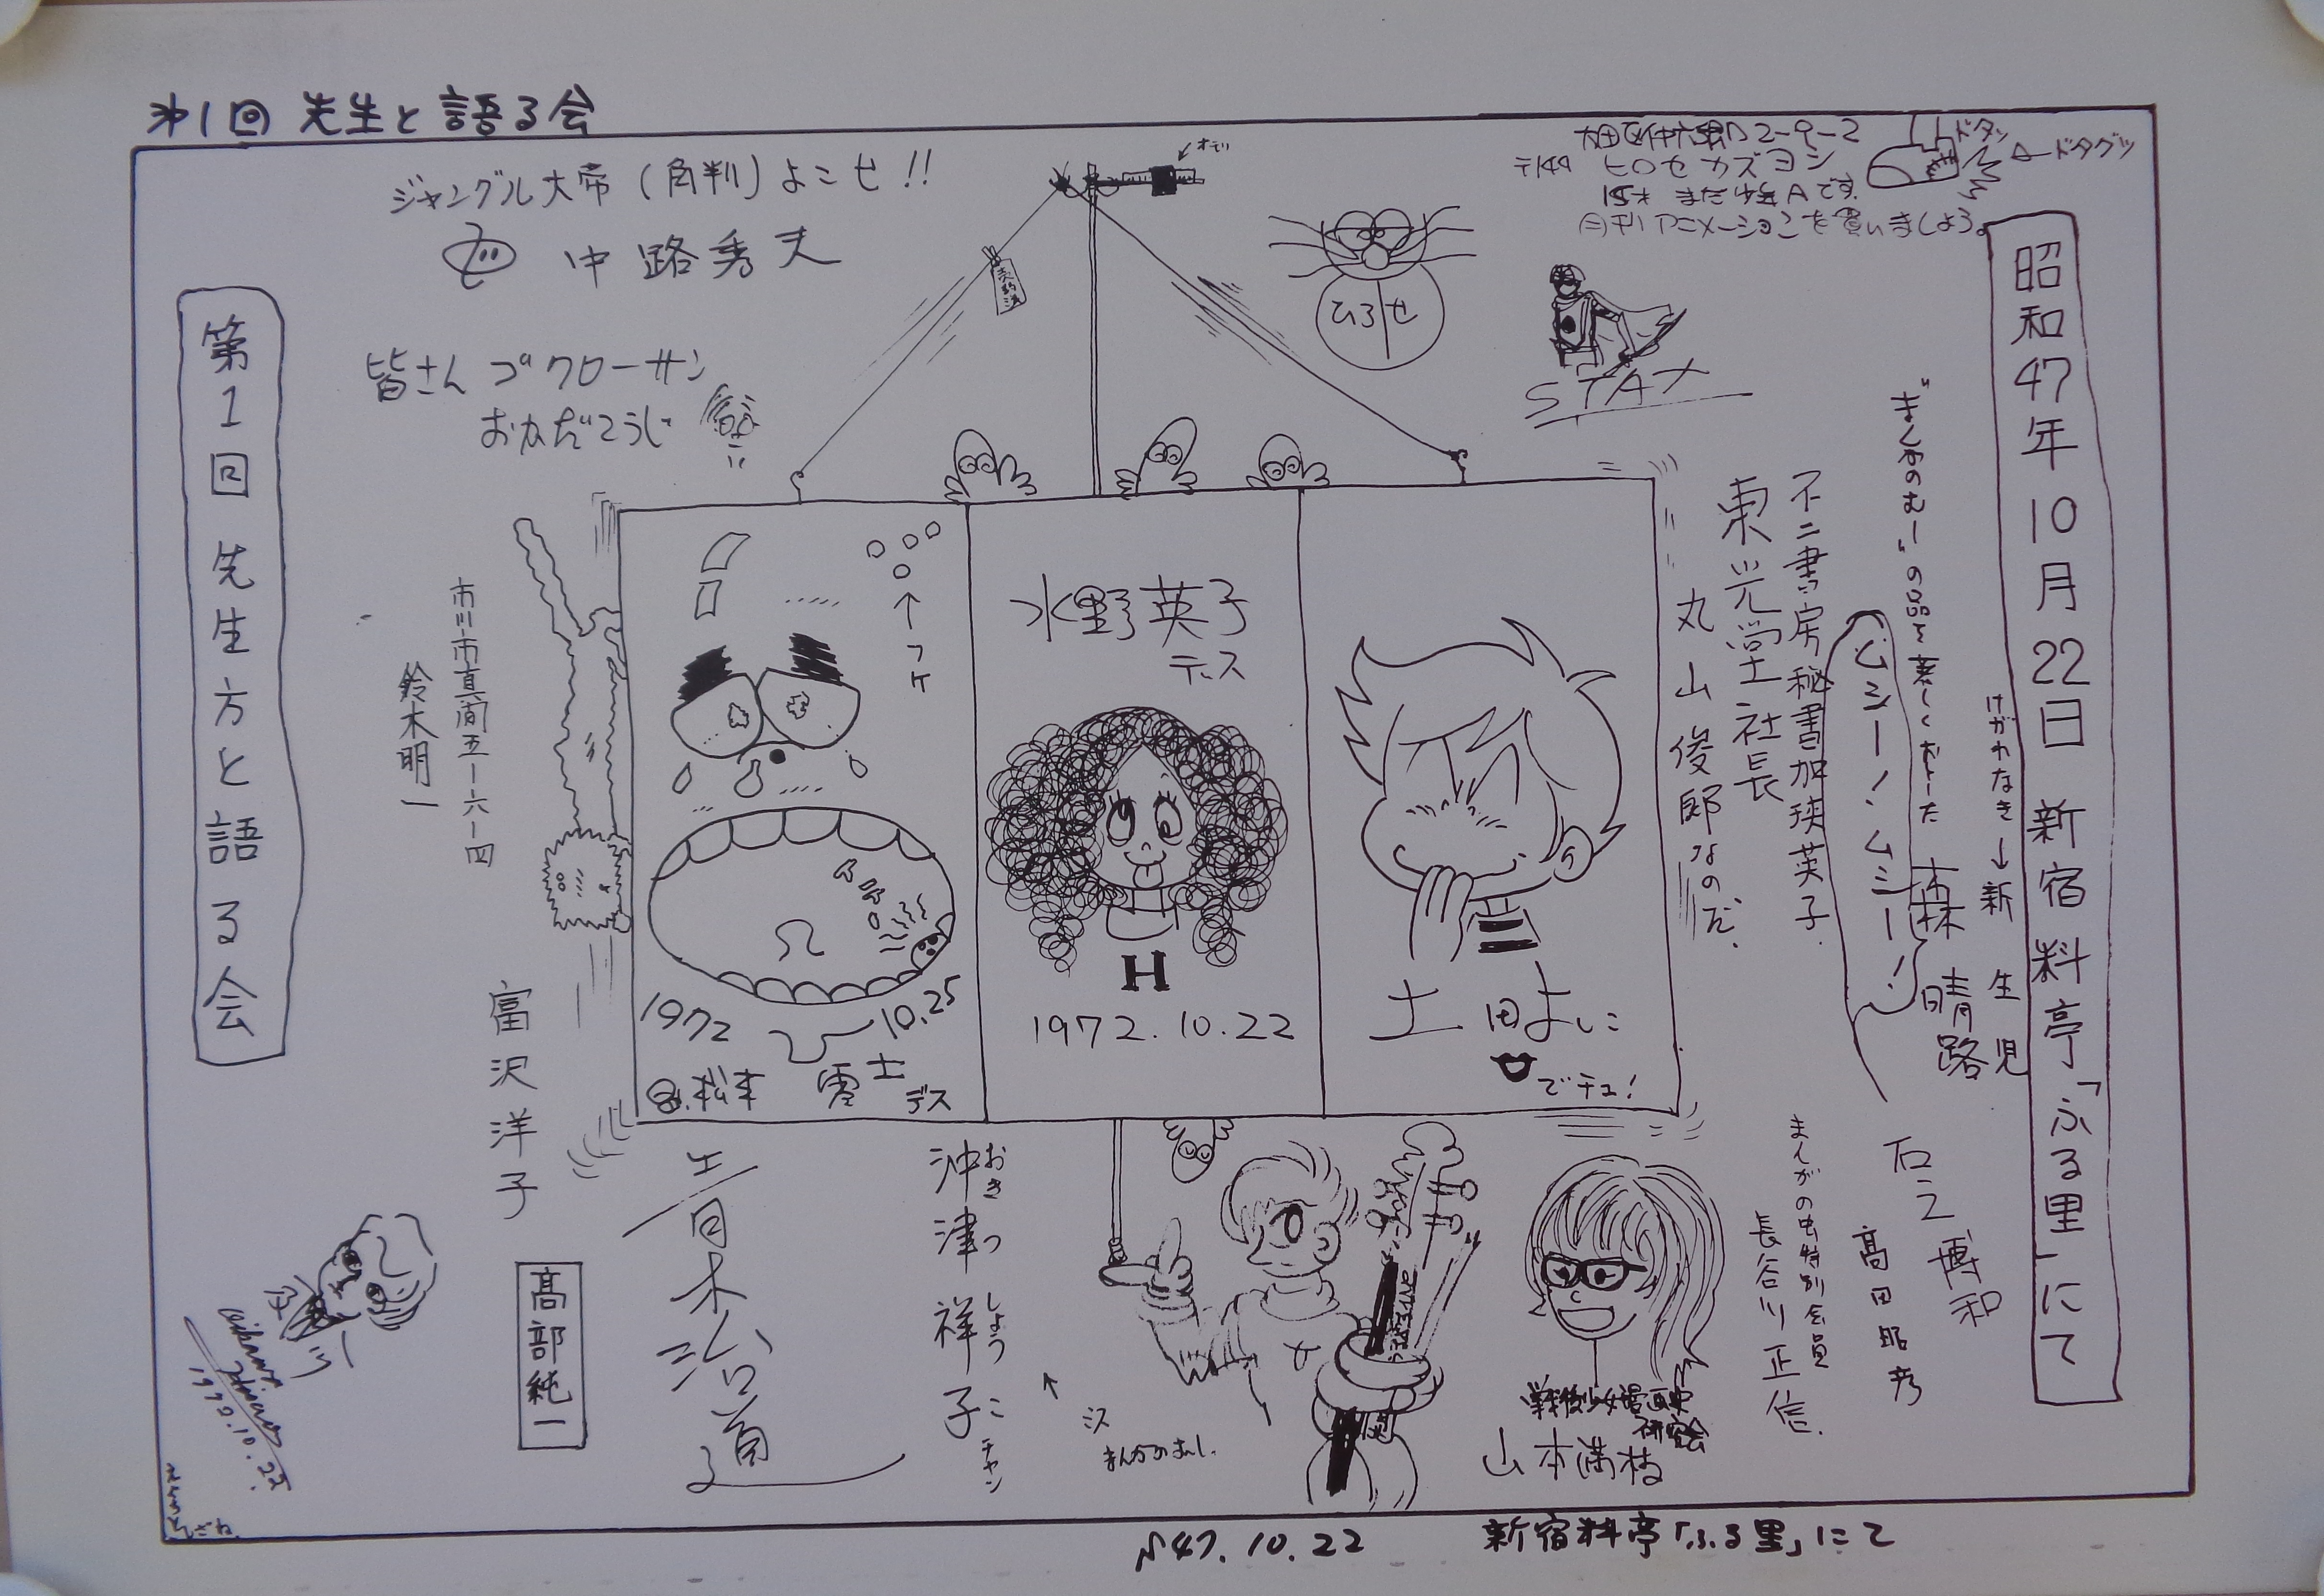 第1回 先生と語る会
ジャングル大帝（角判）よこせ!!
中路秀夫
皆さん ゴクローサン
おかだこうじ
第1回 先生方と語る会
市川市真間五ー六ー四
鈴木明一
富沢洋子
高部純一
青木治道
沖津祥子
おきつ しょうこ
チャン
オモリ
大田区仲六郷 2-9-2
〒144 ヒロセ カズヨシ
15才 まだ少年Aです
月刊アニメーションを買いましょう。
ドタッ
←ドタグツ
ひろせ
STAX
↑フケ
1972 10.25
松本零士デス
水野英子
デス
H
1972.10.22
土田よしこ
でチュ!
昭和47年10月22日 新宿 料亭「ふる里」にて
けがわなき→新生児
森晴路
ムシー! ムシー!
不二書房秘書加狭英子.
東光堂社長
丸山俊郎なのだ.
石之博和
高田昭彦
まんがの虫特別会員
長谷川正信.
戦後少女漫画史
研究会
山本満枝
1972.10.22.
S47.10.22 新宿料亭「ふる里」にて